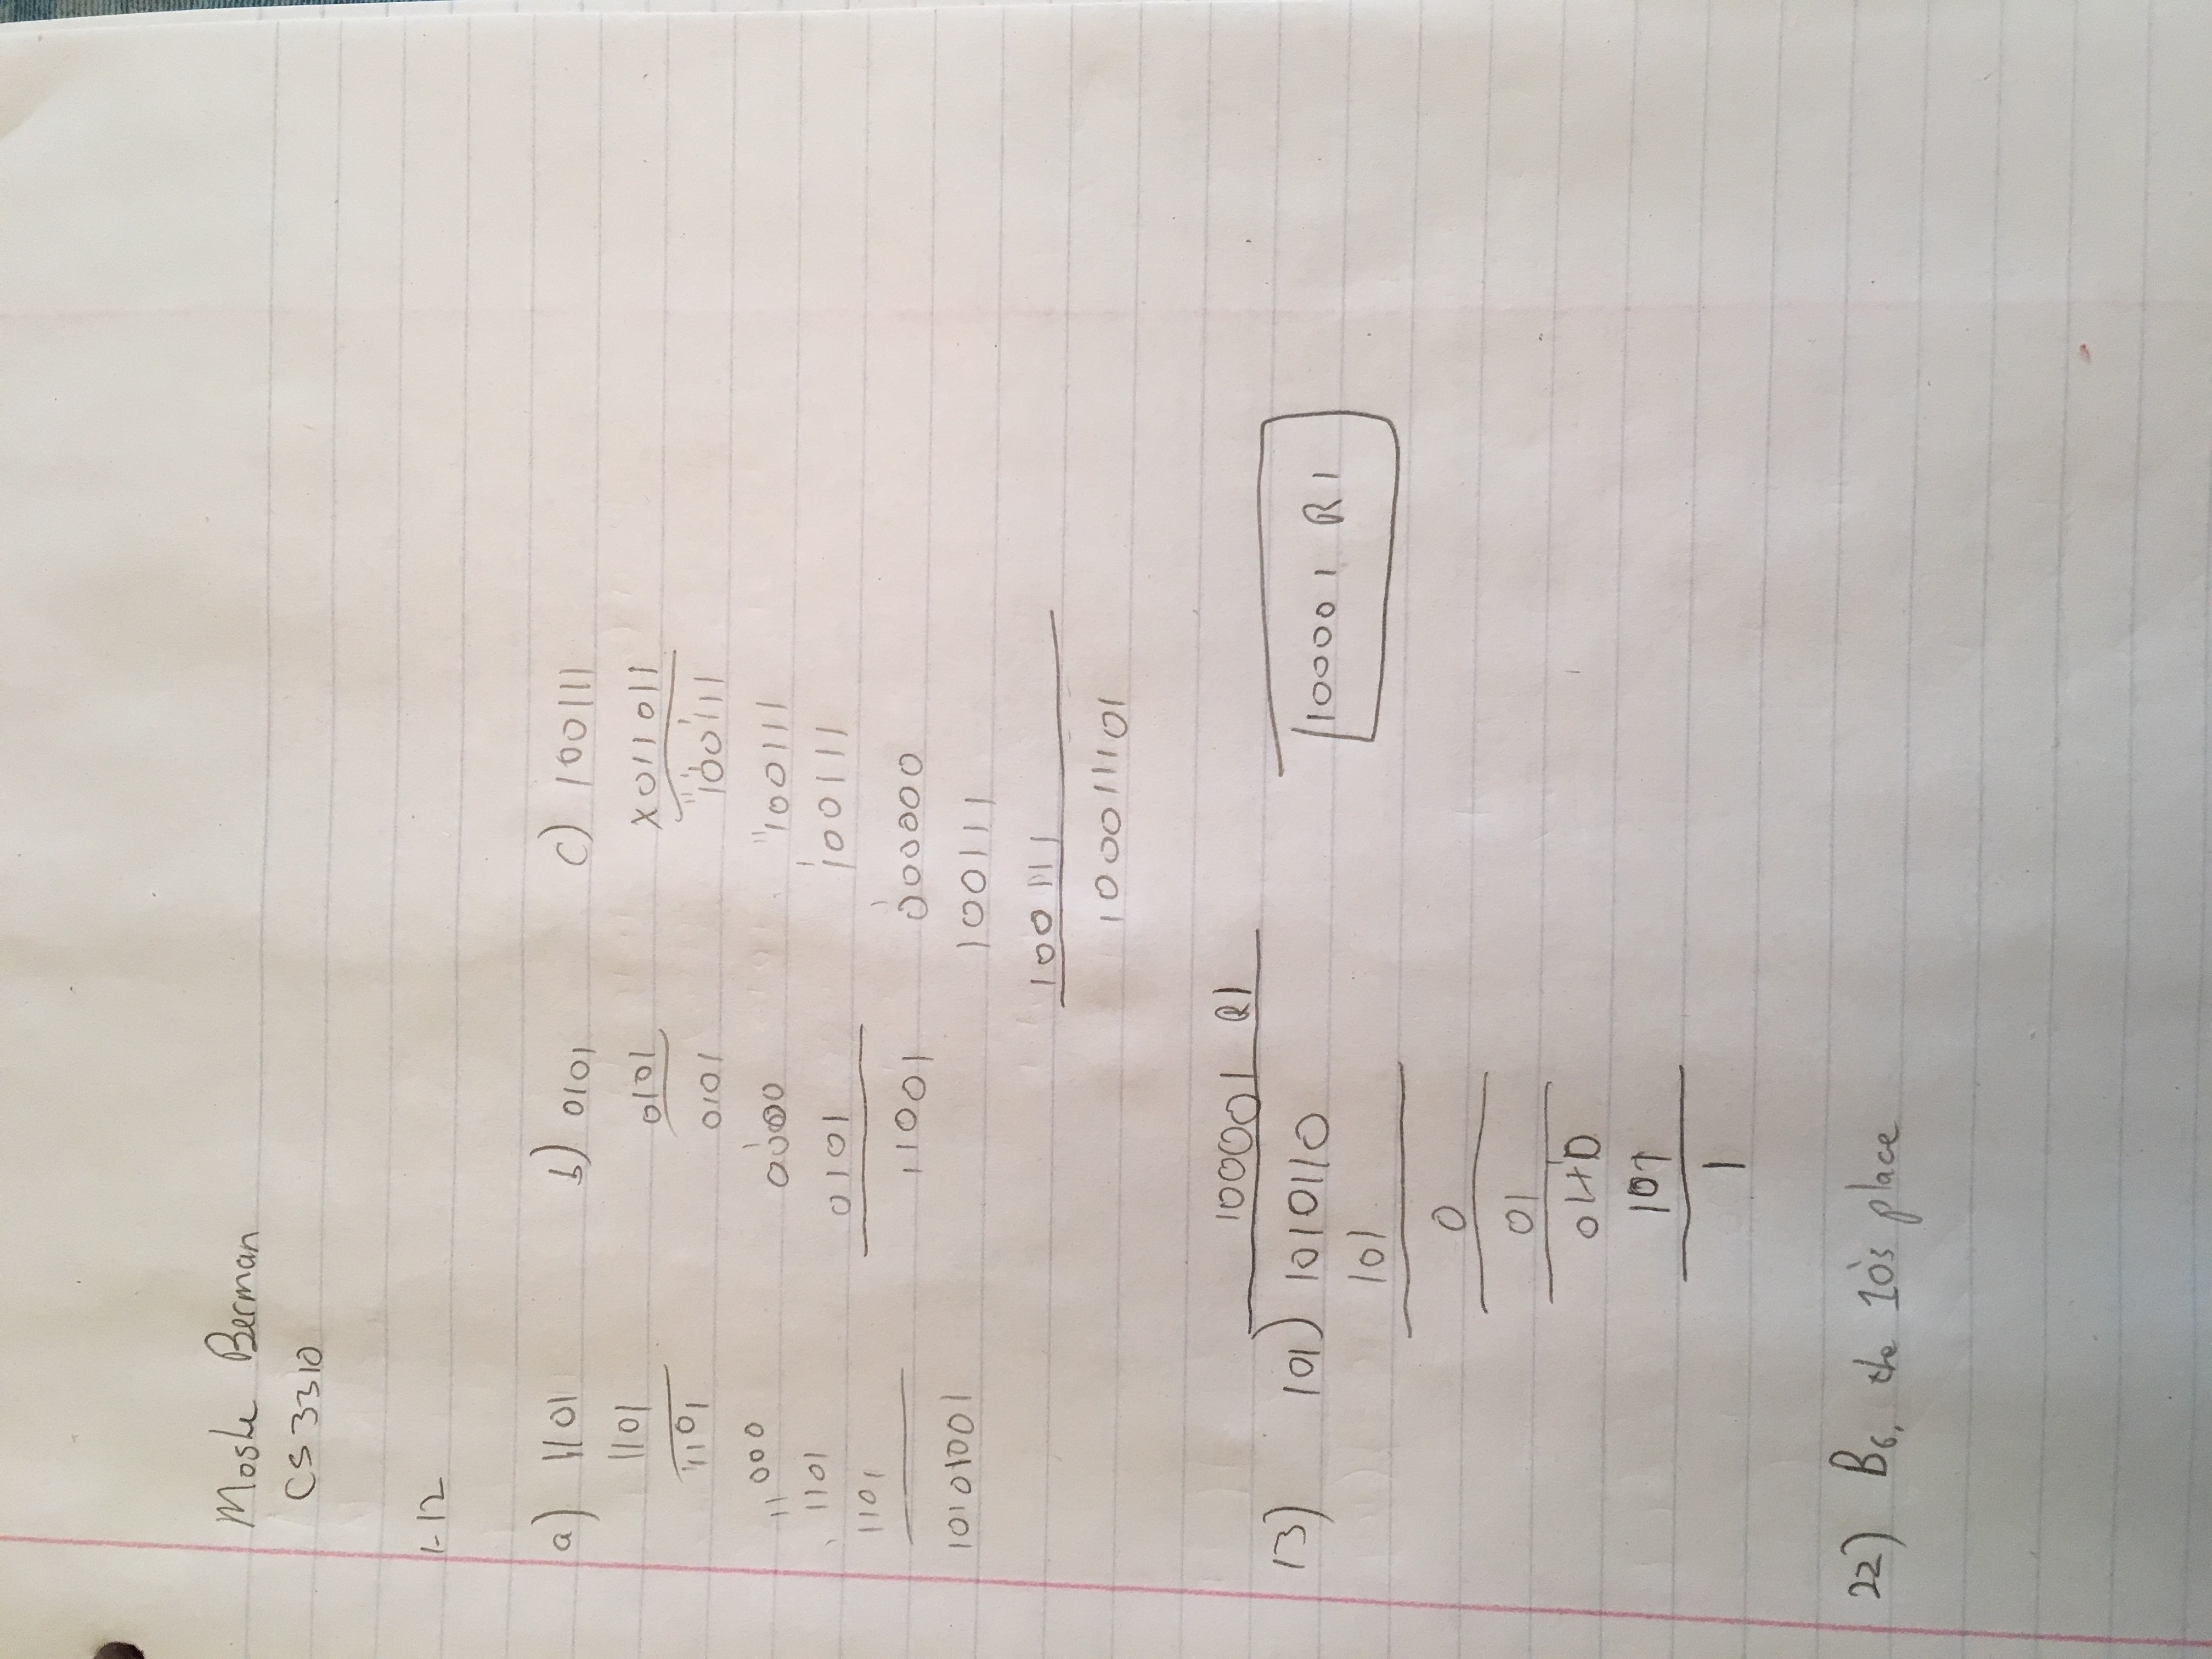 Moshe Berman
CS 3310
1-12
a) 1101
1101
1101
000
1101
1101
10101001
b) 0101
0101
0101
0000
0101
11001
c) 100111
X011011
100111
100111
100111
000000
100111
100111
100011101
100001 R1
13) 101) 1010110
101
0
01
0110
101
1
100001 R1
22) B6, the 10's place